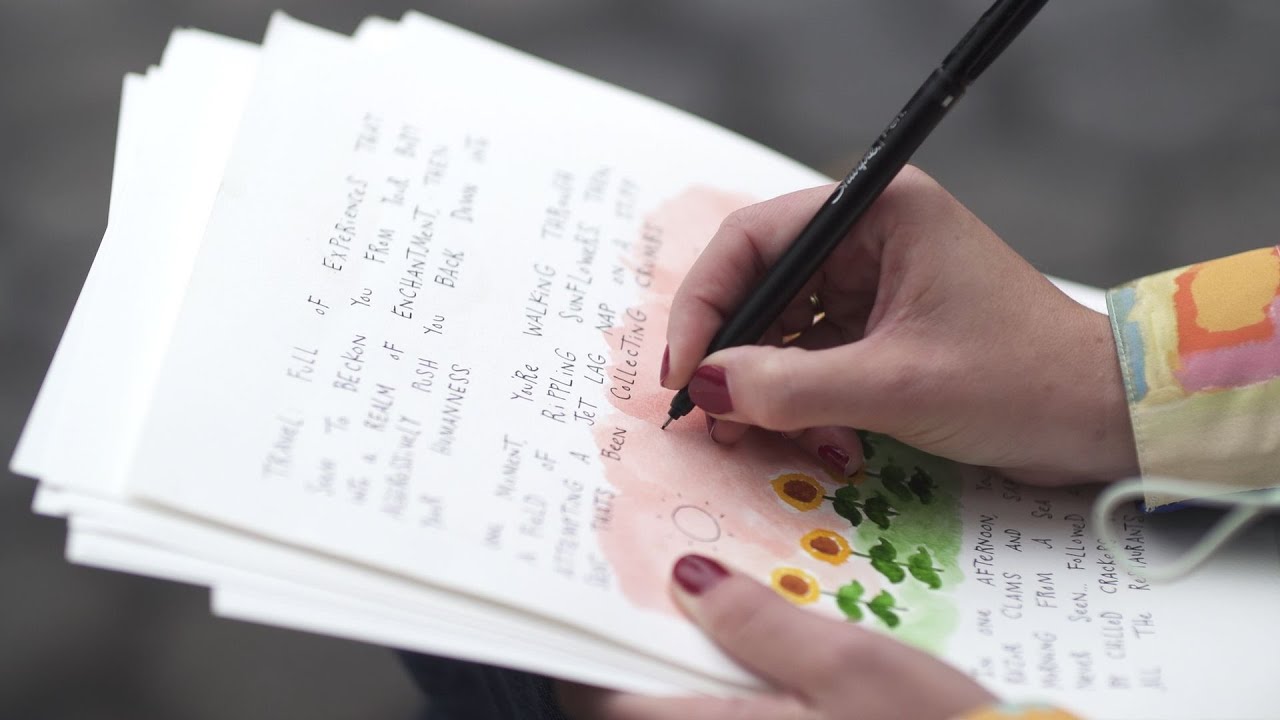 TRAVEL FULL OF EXPERIENCES THAT
SEEM TO BECKON YOU FROM YOUR
INTO A REALM OF ENCHANTMENT, THEN
AGGRESSIVELY PUSH YOU BACK DOWN INTO
YOUR HUMANNESS.
ONE MOMENT, YOU'RE WALKING THROUGH
A FIELD OF RIPPLING SUNFLOWERS THEN
ATTEMPTING A JET LAG NAP ON A STIFF
THAT'S BEEN COLLECTING CRUMBS
IN ONE AFTERNOON,
CLAMS AND
FROM A SEA
NEVER SEEN.. FOLLOWED
BY CHILLED
ALL THE RESTAURANTS
Sharpie PEN